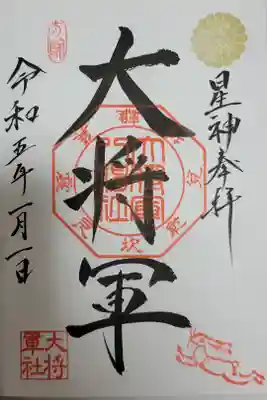 星神奉拝
大将軍
令和五年一月一日
大将軍社